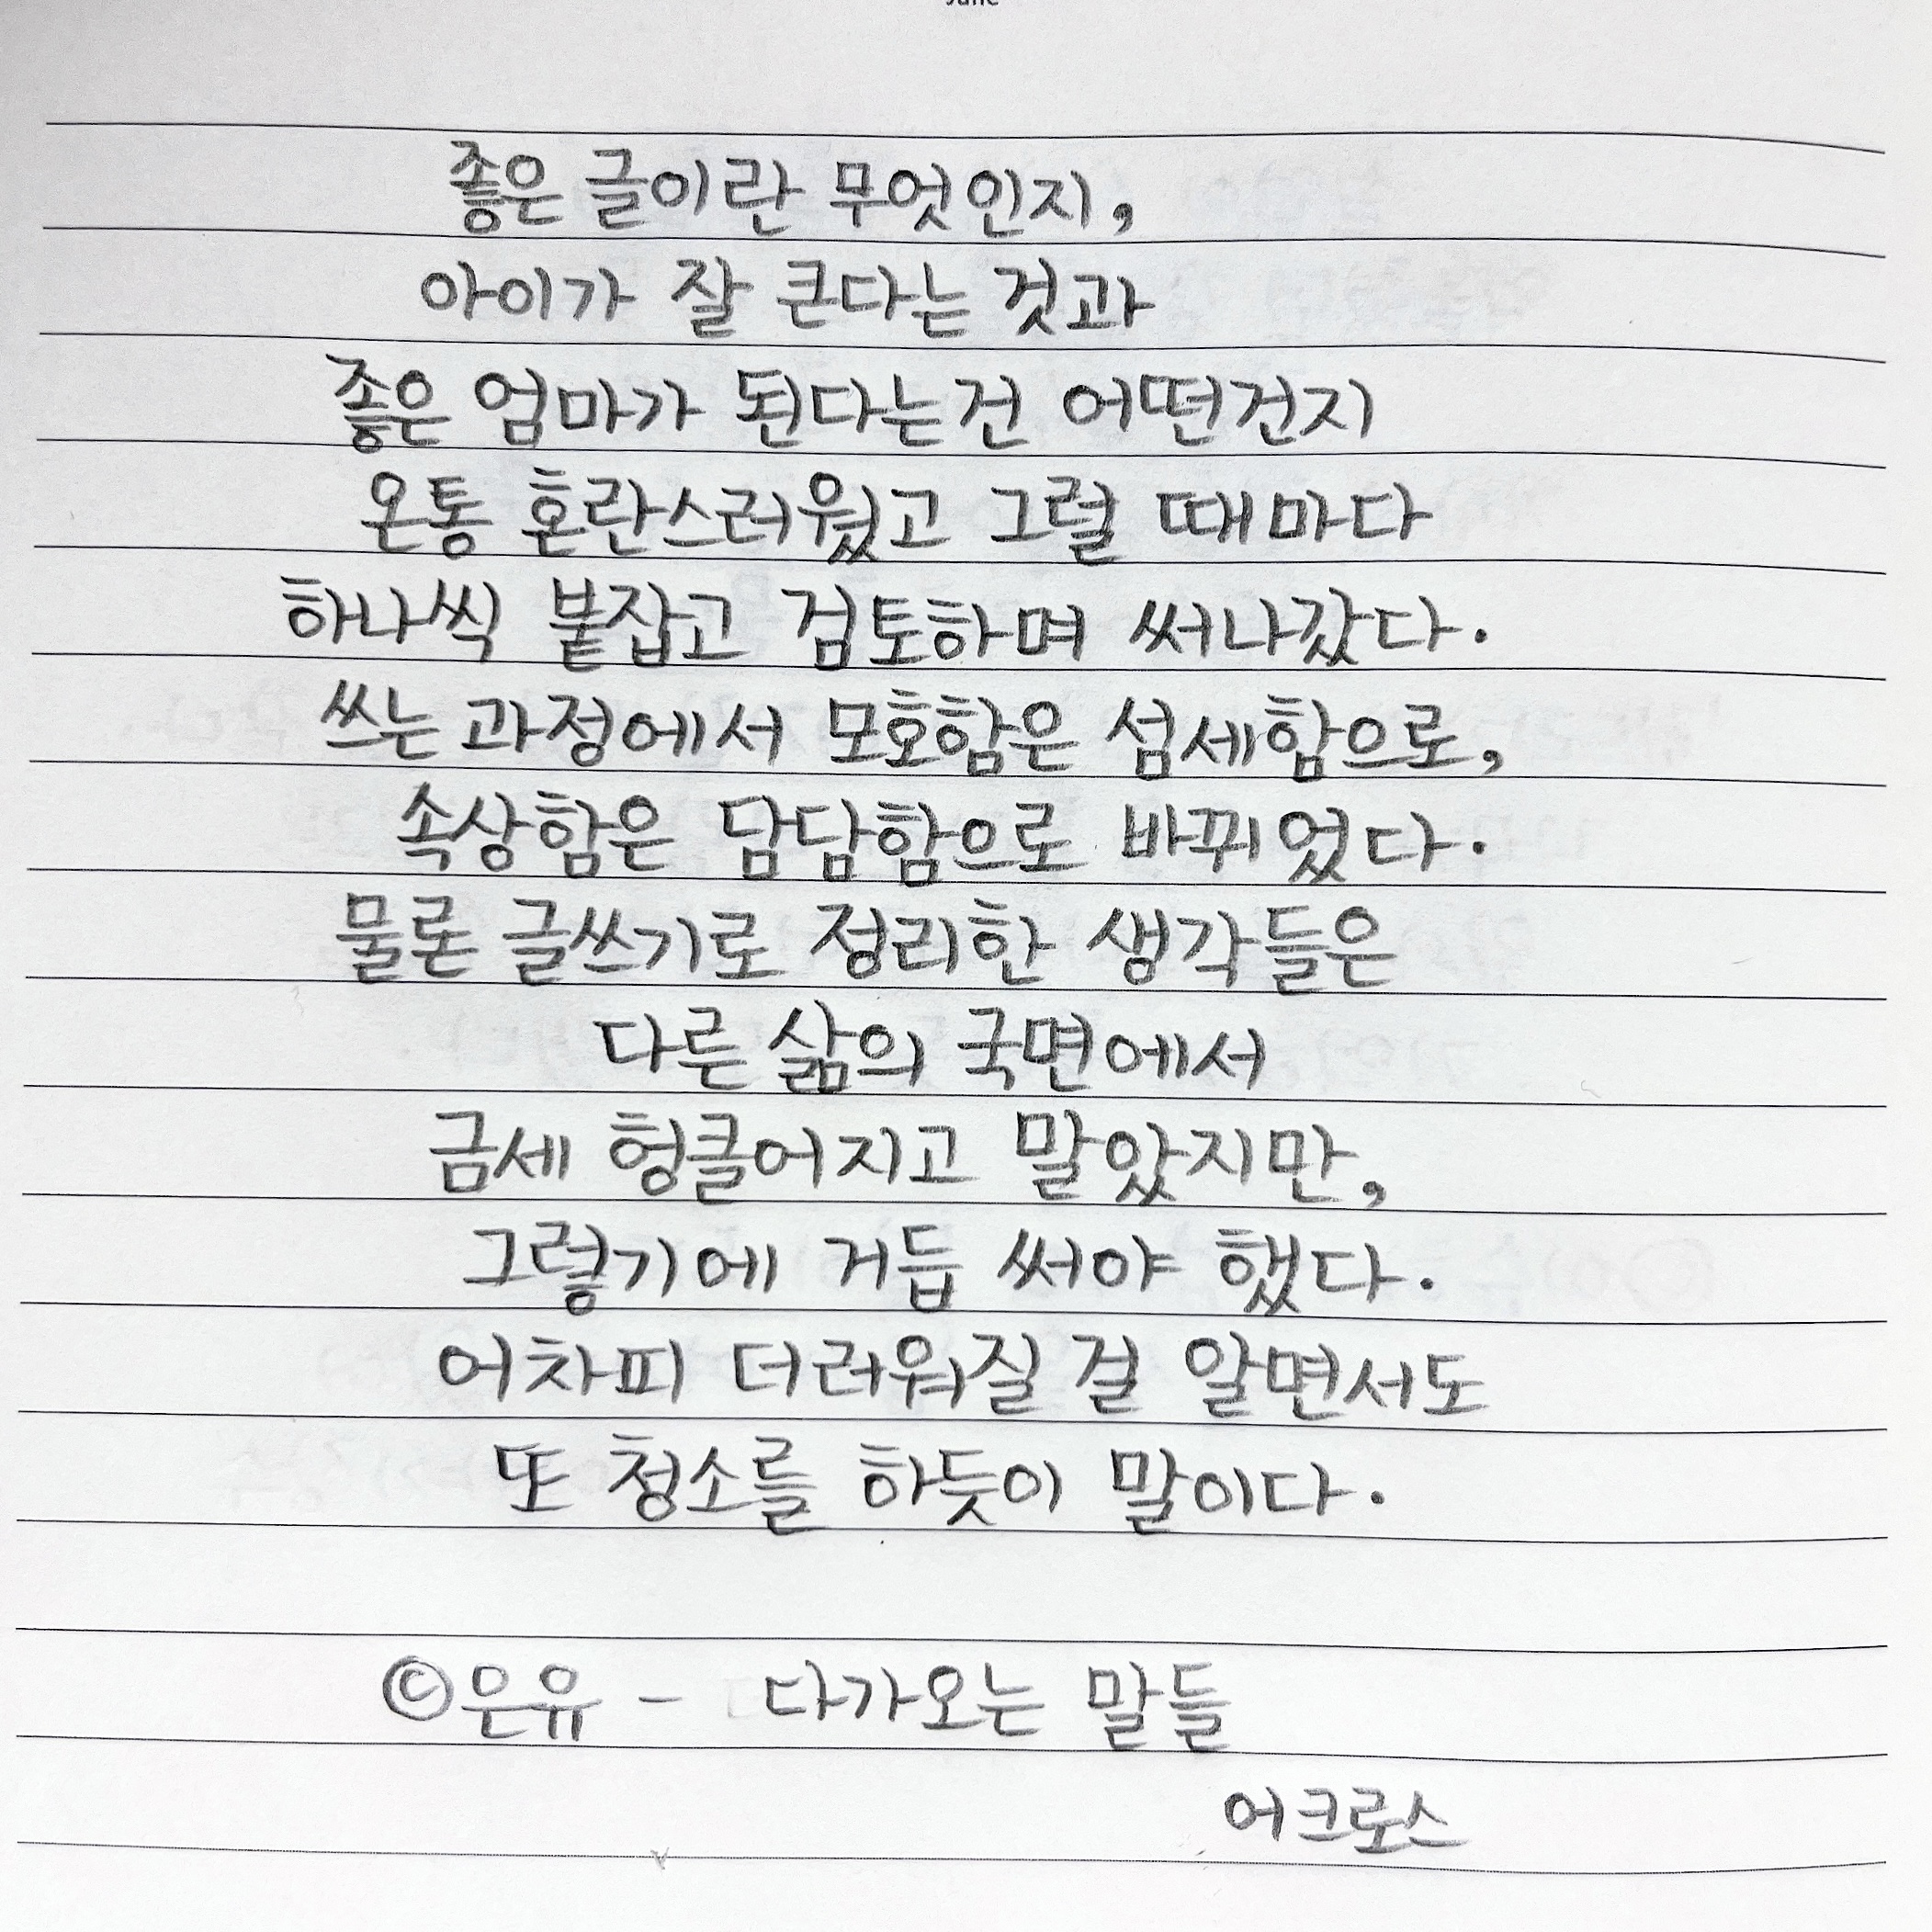 좋은 글이란 무엇인지,
아이가 잘 큰다는 것과
좋은 엄마가 된다는건 어떤건지
온통 혼란스러웠고 그럴 때마다
하나씩 붙잡고 검토하며 써나갔다.
쓰는 과정에서 모호함은 섬세함으로,
속상함은 담담함으로 바뀌었다.
물론 글쓰기로 정리한 생각들은
다른 삶의 국면에서
금세 헝클어지고 말았지만,
그렇기에 거듭 써야 했다.
어차피 더러워질 걸 알면서도
또 청소를 하듯이 말이다.
©은유 - 다가오는 말들
어크로스